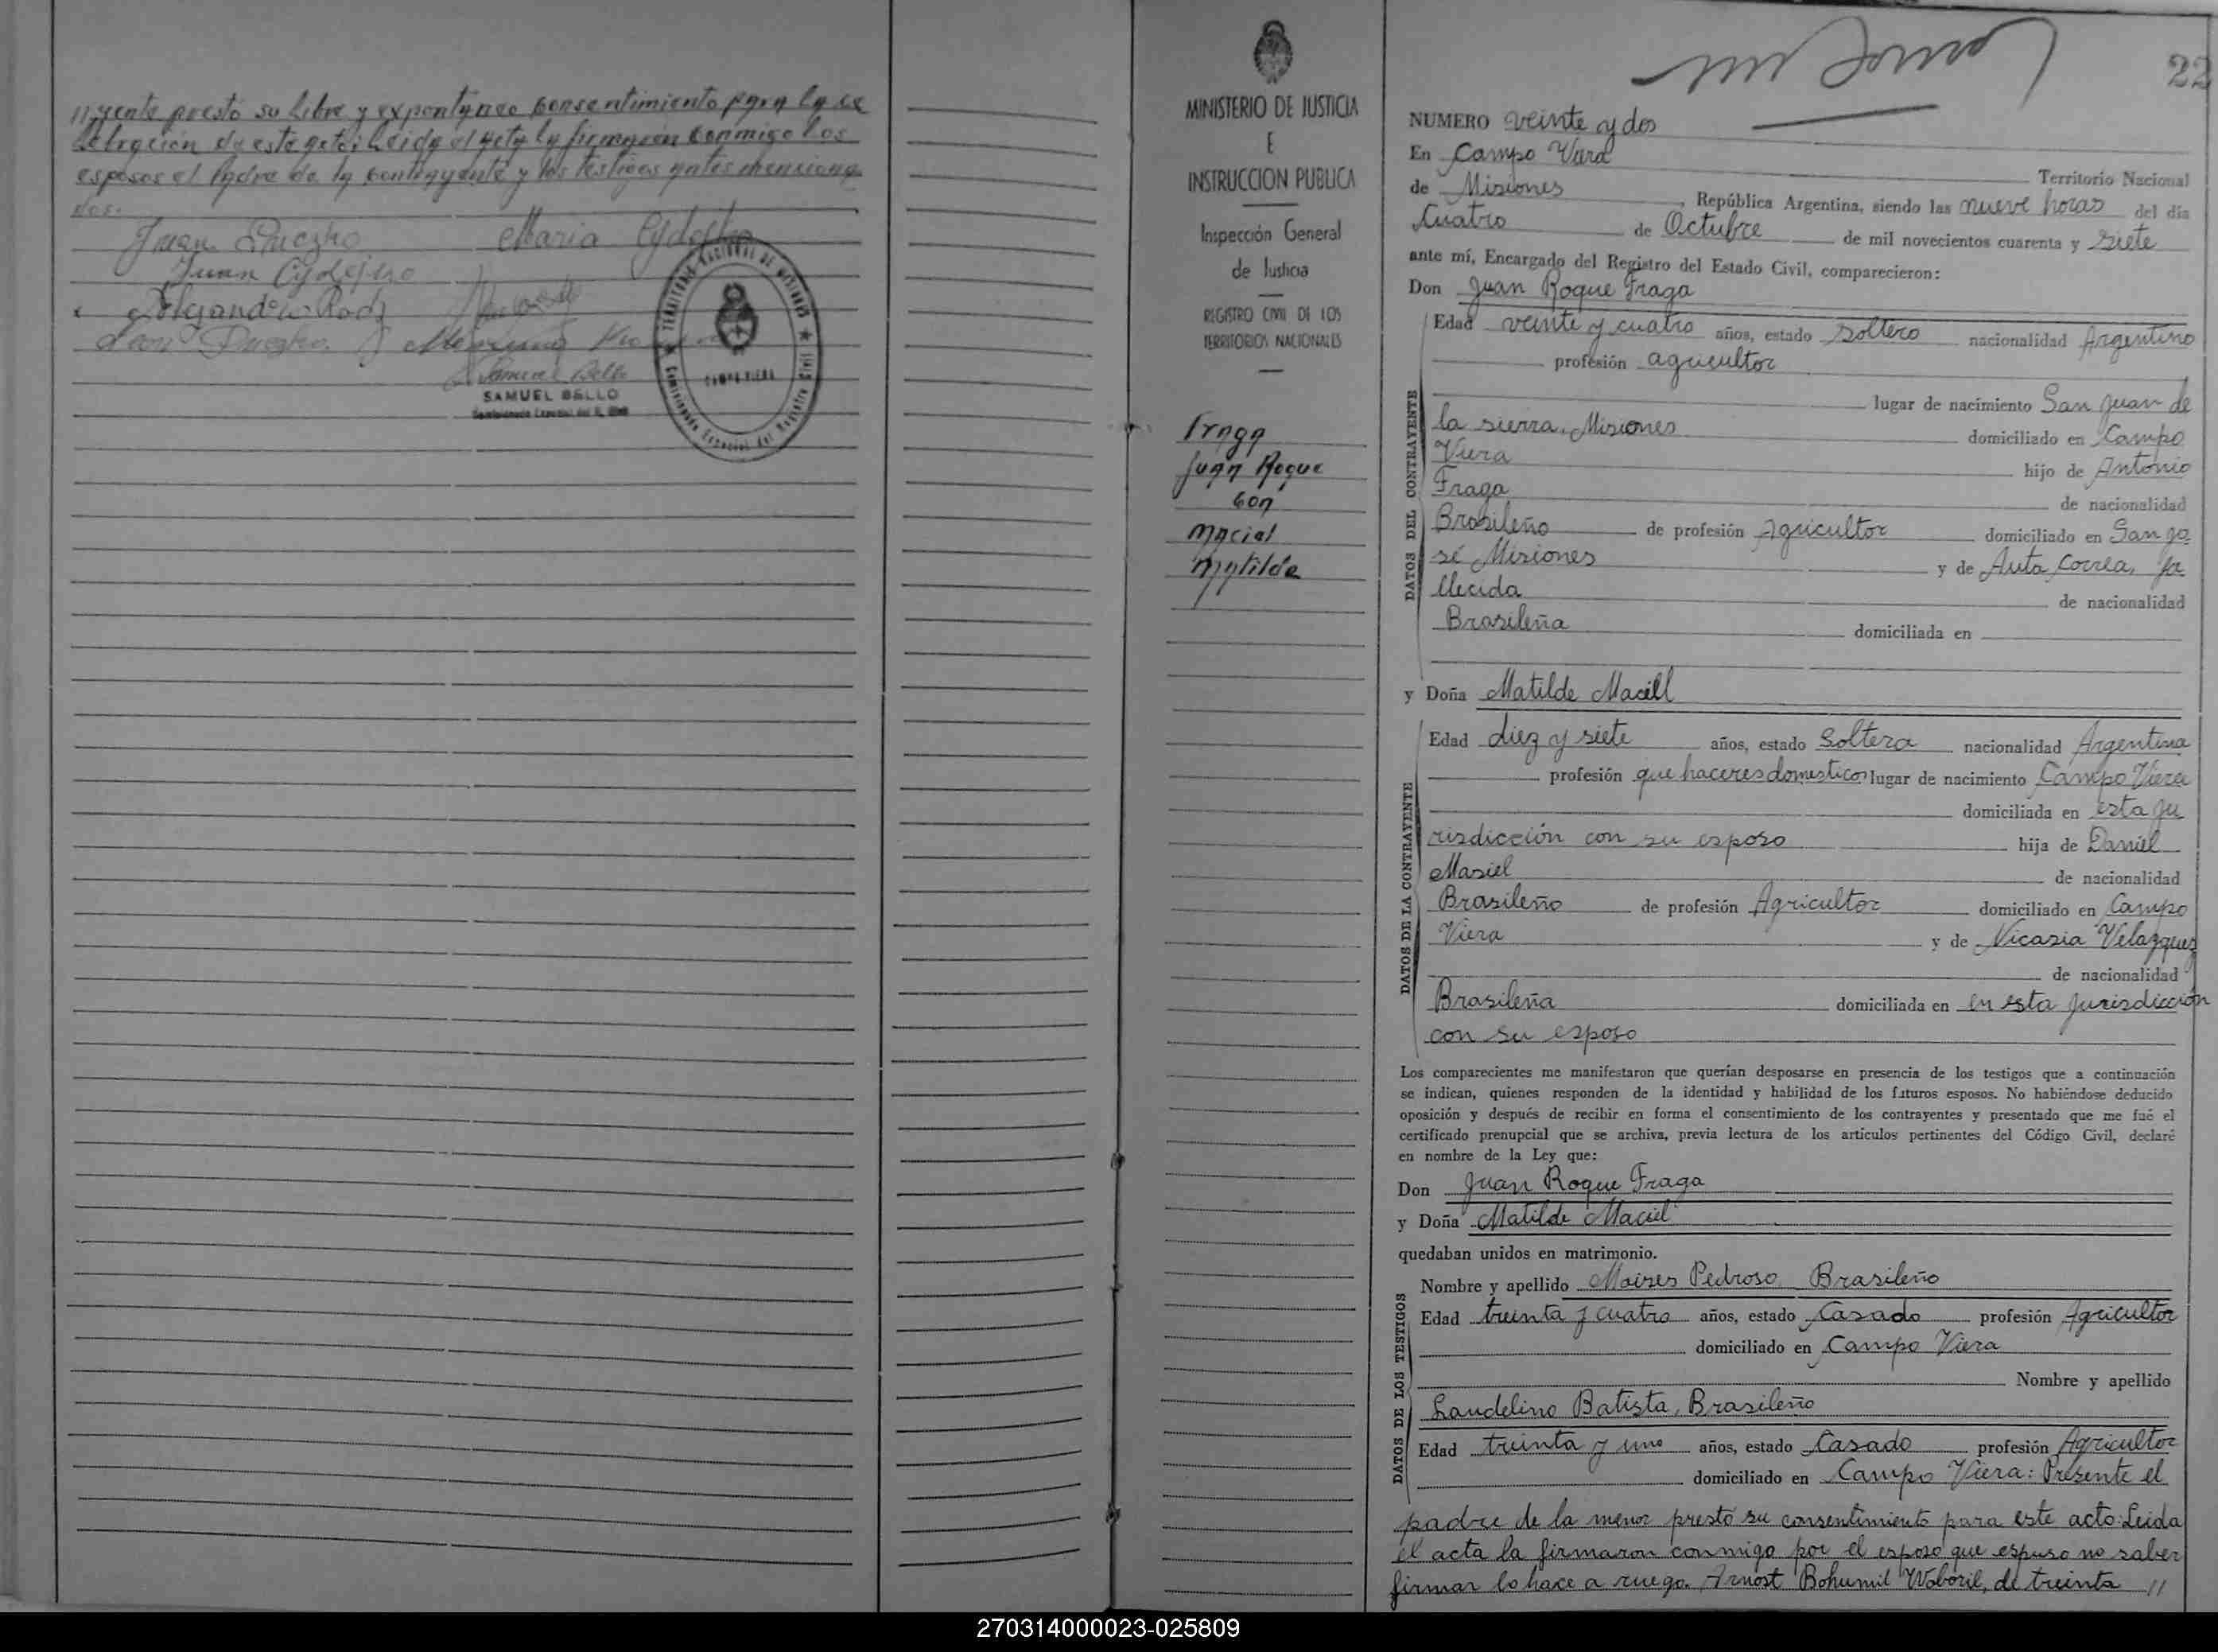 //yente prestó su libre y expontáneo consentimiento para la ce
lebración de este acto: Leida el acta la firmaron conmigo los
esposos el padre de la contrayente y los testigos antes menciona
dos.
Juan
Maria
Juan
Alejandro
SAMUEL BELLO
TERRITORIO NACIONAL DE MISIONES
CAMPO VIERA
MINISTERIO DE JUSTICIA
E
INSTRUCCION PUBLICA
Inspección General
de Justicia
REGISTRO CIVIL DE LOS
TERRITORIOS NACIONALES
Fraga
Juan Roque
con
Macial
Matilde
22
NUMERO veinte y dos
En Campo Viera
Territorio Nacional
de Misiones, República Argentina, siendo las nueve horas del día
Cuatro de Octubre de mil novecientos cuarenta y siete
ante mí, Encargado del Registro del Estado Civil, comparecieron:
Don Juan Roque Fraga
DATOS DEL CONTRAYENTE
Edad veinte y cuatro años, estado soltero nacionalidad Argentino
profesión agricultor
lugar de nacimiento San Juan de
la sierra, Misiones domiciliado en Campo
Viera hijo de Antonio
Fraga de nacionalidad
Brasileño de profesión Agricultor domiciliado en San Jo
sé Misiones y de Auta Correa, fa
llecida de nacionalidad
Brasileña domiciliada en
y Doña Matilde Maciel
DATOS DE LA CONTRAYENTE
Edad diez y siete años, estado Soltera nacionalidad Argentina
profesión que haceres domesticos lugar de nacimiento Campo Viera
domiciliada en esta ju
risdicción con su esposo hija de Daniel
Masiel de nacionalidad
Brasileño de profesión Agricultor domiciliado en Campo
Viera y de Nicasia Velazquez
de nacionalidad
Brasileña domiciliada en en esta jurisdicción
con su esposo
Los comparecientes me manifestaron que querían desposarse en presencia de los testigos que a continuación
se indican, quienes responden de la identidad y habilidad de los futuros esposos. No habiéndose deducido
oposición y después de recibir en forma el consentimiento de los contrayentes y presentado que me fué el
certificado prenupcial que se archiva, previa lectura de los artículos pertinentes del Código Civil, declaré
en nombre de la Ley que:
Don Juan Roque Fraga
y Doña Matilde Maciel
quedaban unidos en matrimonio.
DATOS DE LOS TESTIGOS
Nombre y apellido Moises Pedroso, Brasileño
Edad treinta y cuatro años, estado Casado profesión Agricultor
domiciliado en Campo Viera
Nombre y apellido
Laudelino Batista, Brasileño
Edad treinta y uno años, estado Casado profesión Agricultor
domiciliado en Campo Viera: Presente el
padre de la menor prestó su consentimiento para este acto: Leida
el acta la firmaron conmigo por el esposo que espuso no saber
firmar lo hace a ruego Arnost Bohumil Woboril, de treinta //
270314000023-025809